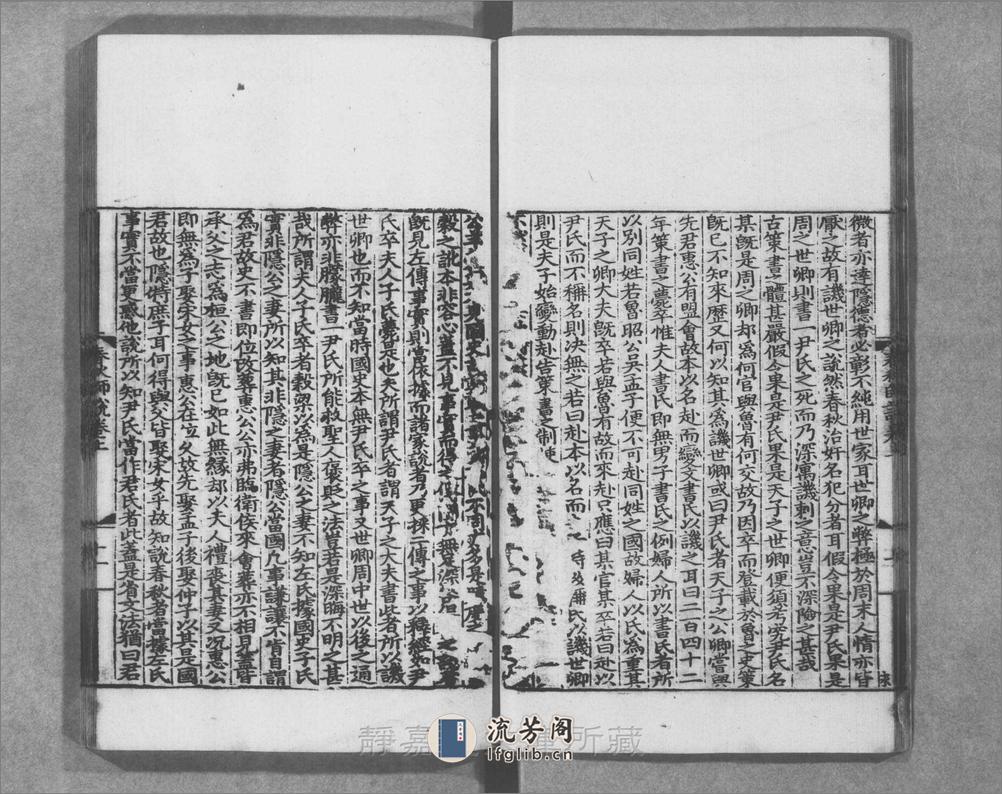 微者亦達隱德者必彰不純用世家耳世卿之弊極於周末人情亦皆
厭之故有譏世卿之說然春秋治奸名犯分者耳假令果是尹氏果是
周之世卿則書一尹氏之死而乃深寓譏刺之意豈不深險之甚哉
古策書之體甚嚴假令果是尹氏果是天子之世卿便須考尹氏名
其旣是周之卿却爲何官與魯有何交故乃因卒而登載於魯之史策
旣已不知來歷又何以知其爲譏世卿或曰尹氏者天子之公卿嘗與
先君惠公有盟會故本以名赴而變文書氏以譏之耳曰二百四十二
年策書之薨卒惟夫人書氏即無男子書氏之例婦人所以書氏者所
以別同姓若魯昭公吳孟子便不可赴同姓之國故婦人以氏爲重其
天子之卿大夫旣卒若與魯有故而來赴只應曰某官某卒若曰赴以
尹氏而不稱名則决無之若曰赴本以名而 氏以譏世卿
則是夫子始變動赴告策書之制使
公羊
穀之訛本非容心蓋不見事實而得之 無深
旣見左傳事實則當依據而諸家說者乃更採二傳之事以釋經如尹
氏卒夫人子氏薨是也夫所謂尹氏者謂天子之大夫書此者所以譏
世卿也而不知當時國史本無尹氏卒之事又世卿周中世以後之通
弊亦非朦朧書一尹氏所能救聖人褒貶之法豈若是深晦不明之甚
哉所謂夫人子氏卒者穀梁以爲是隱公之妻不知左氏據國史子氏
實非隱公之妻所以知其非隱之妻者隱公當國凡事謙讓不肯自謂
爲君故史不書即位改葬惠公公亦弗臨衛侯來會葬亦不相見蓋皆
承父之志爲桓公之地旣已如此無緣却以夫人禮喪其妻又况惠公
即無爲子娶宋女之事惠公在位久故先娶孟子後娶仲子以其是國
君故也隱特庶子耳何得與父皆娶宋女乎故知說春秋者當據左氏
事實不當更惑他說所以知尹氏當作君氏者此蓋是省文法猶曰君
春秋師說卷上
靜嘉 所藏
流芳阁
lfglib.cn